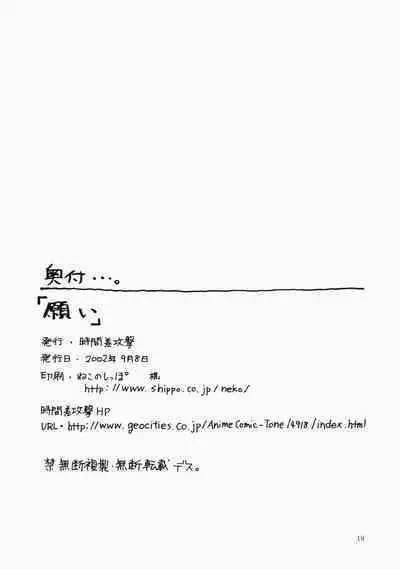 奥付…。
「願い」
発行・時間差攻撃
発行日・2002年9月8日
印刷・ねこのしっぽ 様
http://www.shippo.co.jp/neko/
時間差攻撃HP
URL・http://www.geocities.co.jp/AnimeComic-Tone/4918/index.html
禁無断複製・無断転載デス。